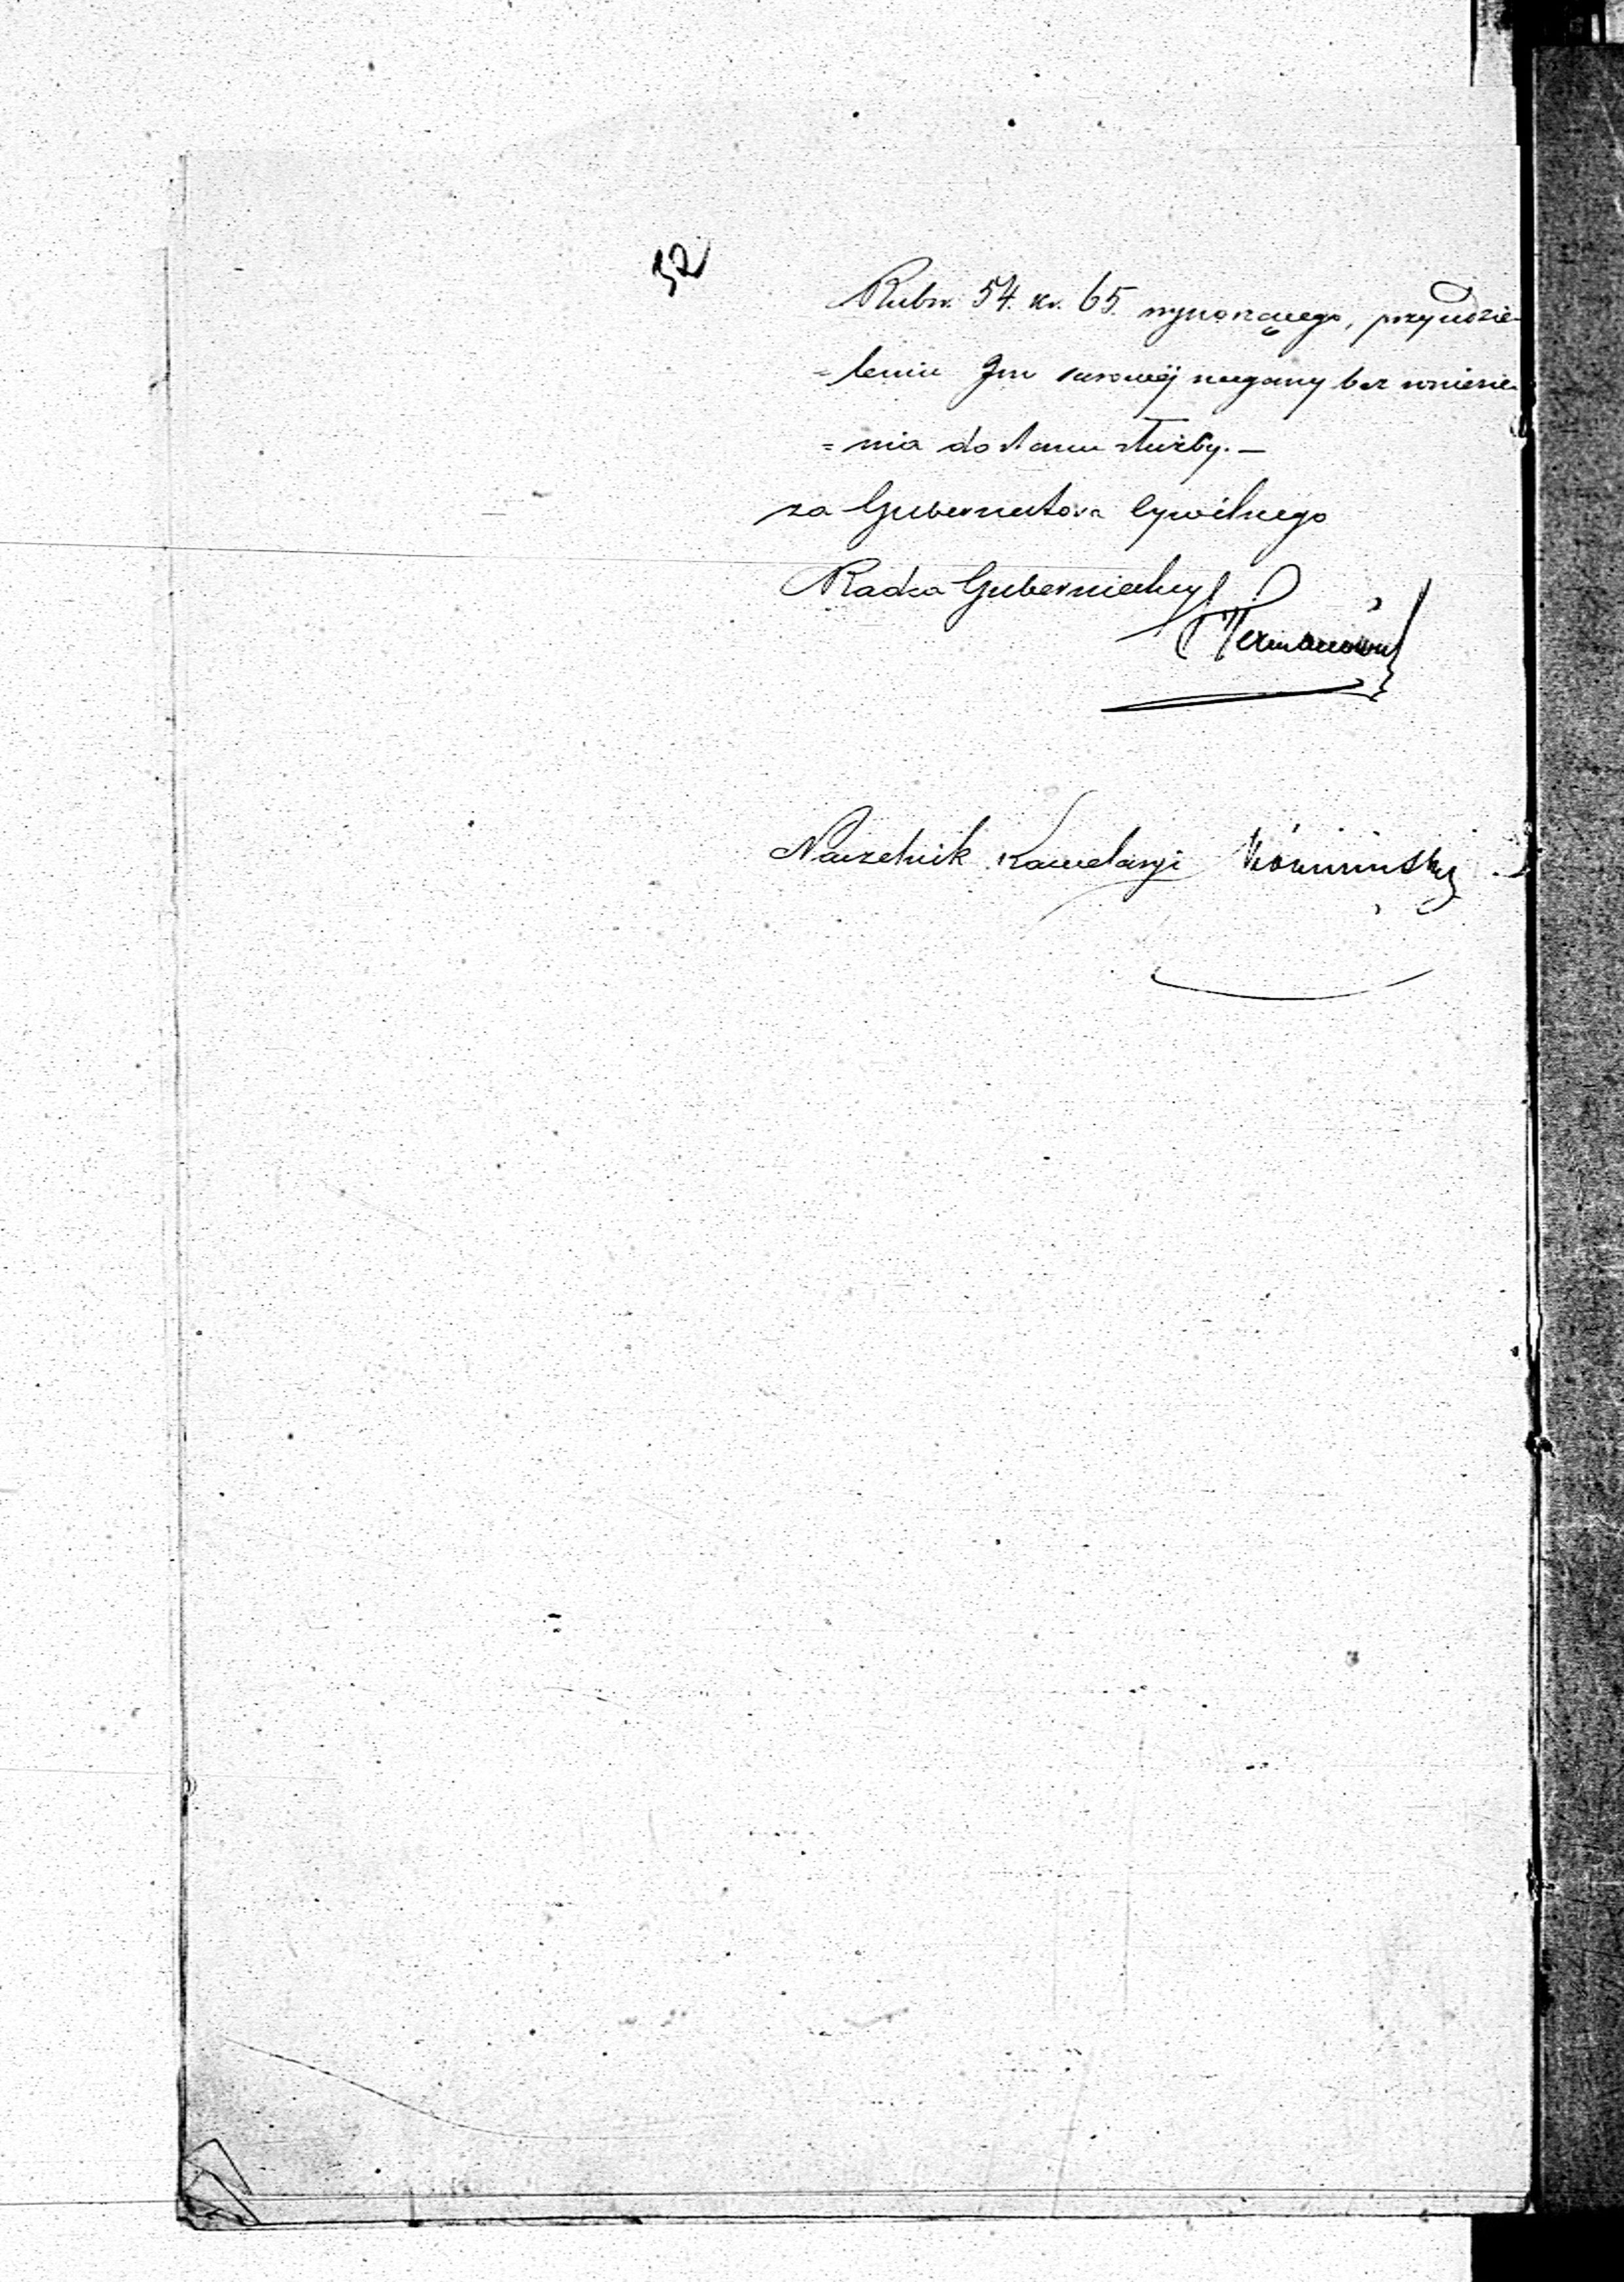 32
Rubsr. 54. kr. 65. wynoszącego, przy udzie-
=leniu Im surowéj nagany bez wniesie-
=nia do stanu służby. —
za Gubernatora Cywilnego
Radca Gubernialny
Naczelnik Kancelaryi